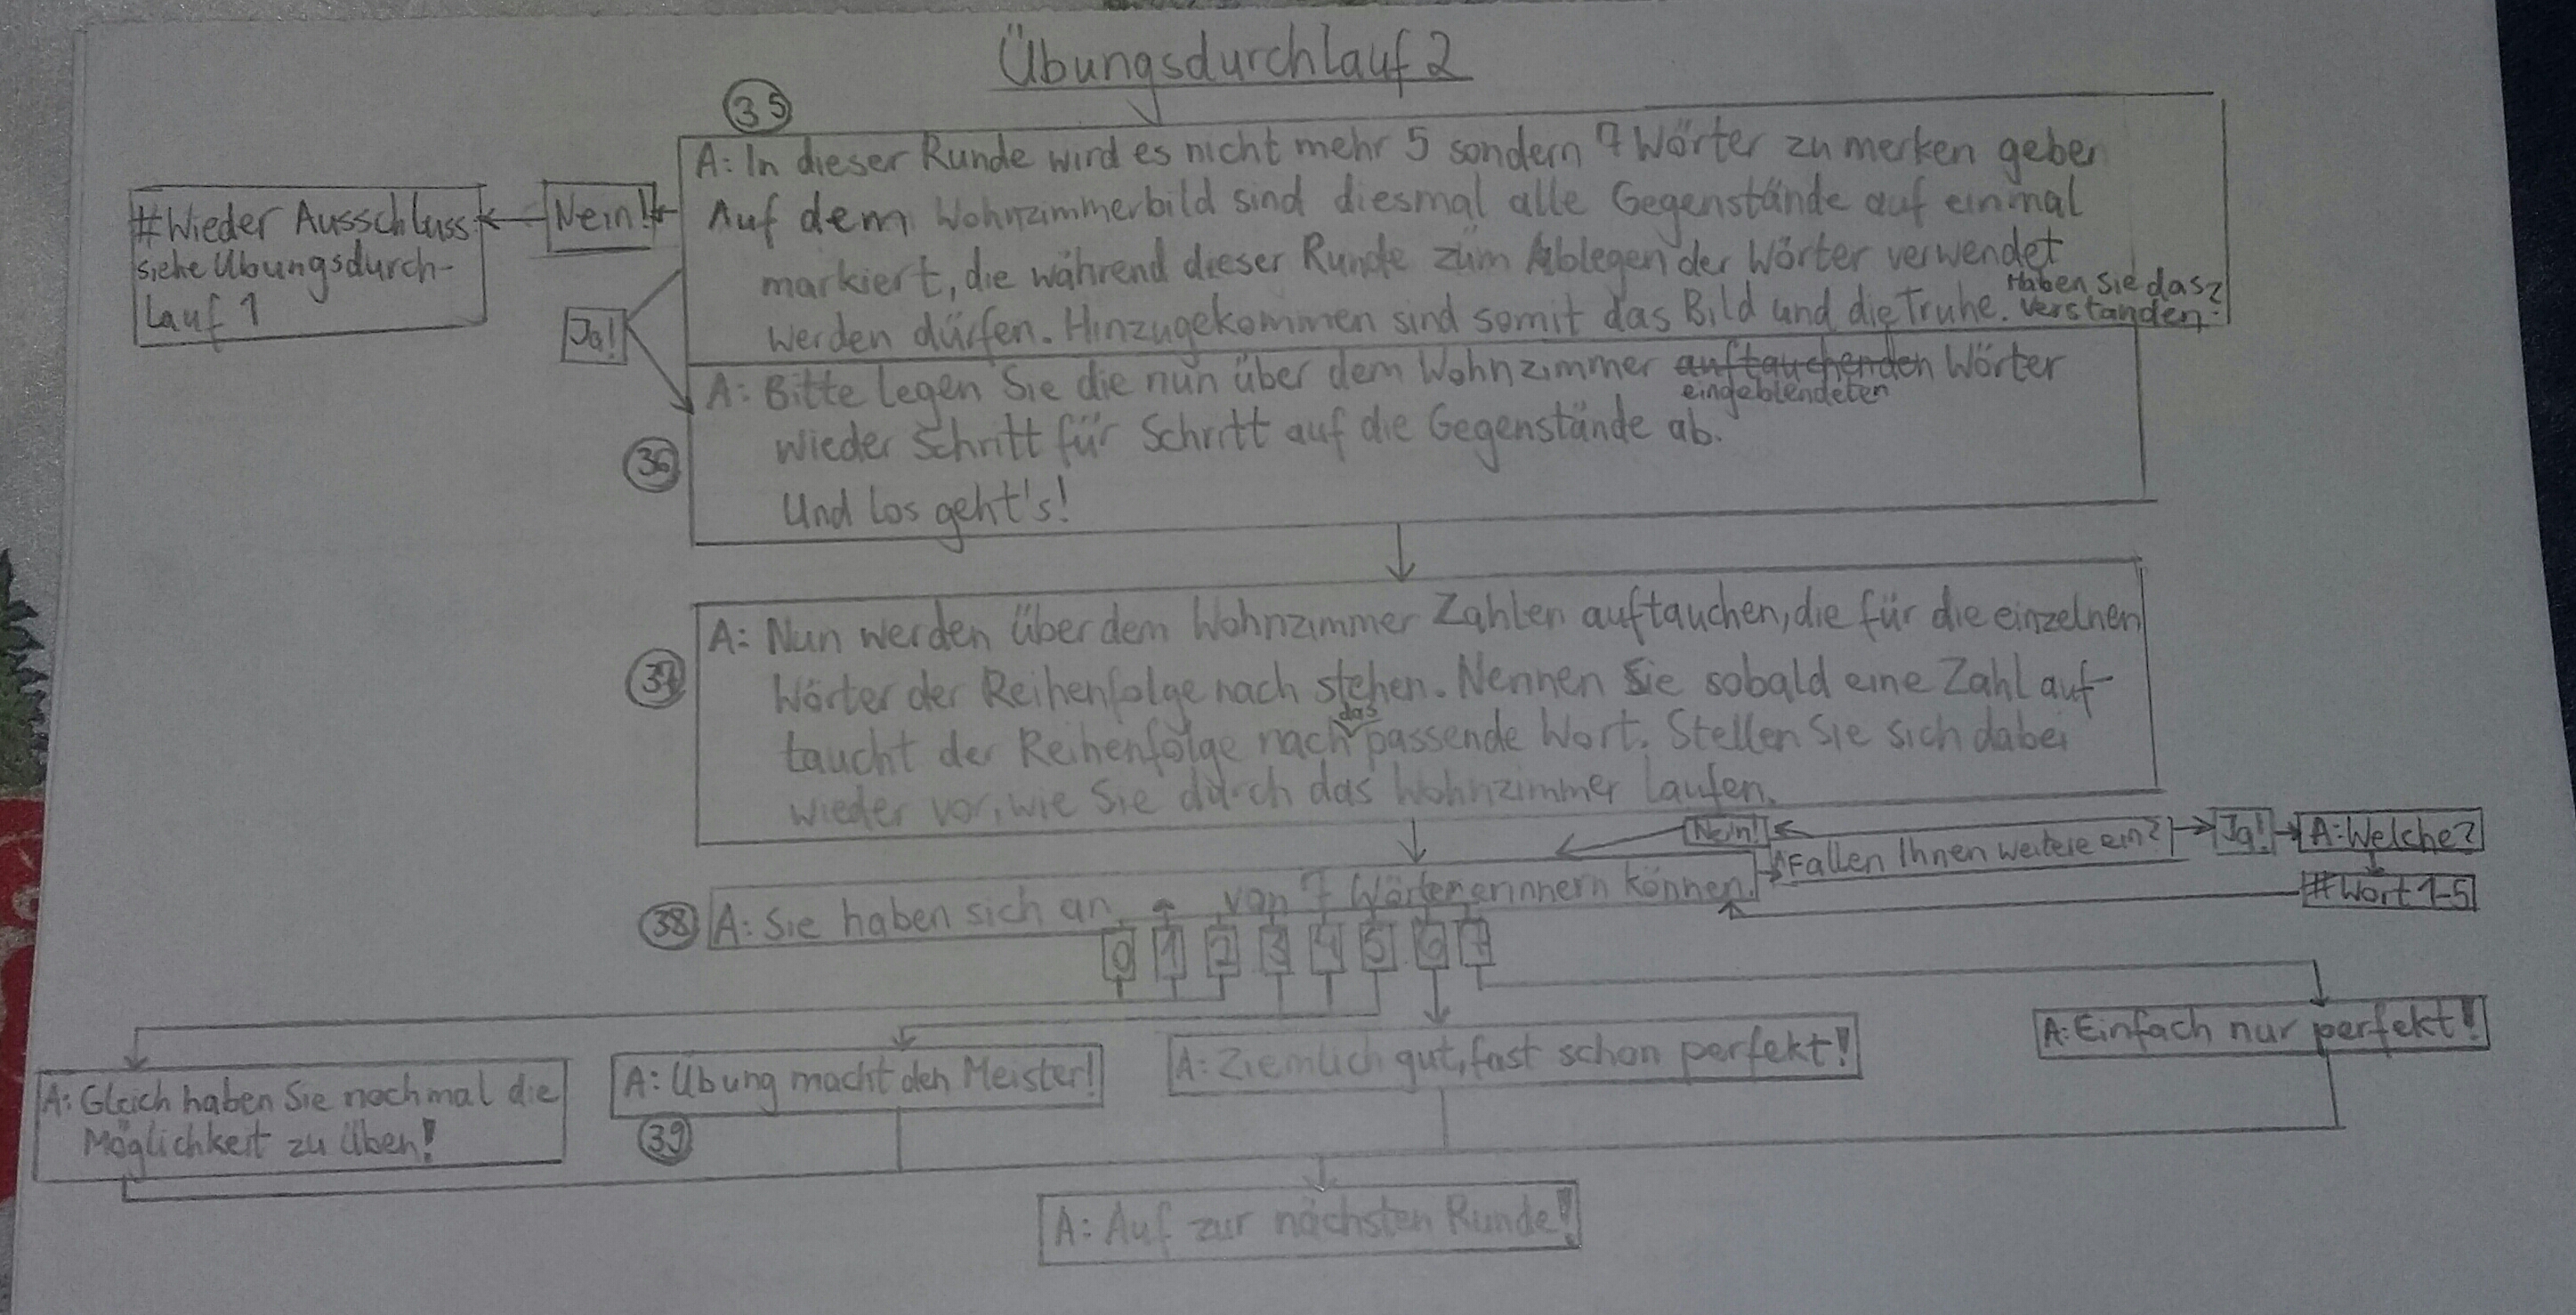 Übungsdurchlauf 2
35
A: In dieser Runde wird es nicht mehr 5 sondern 7 Wörter zu merken geben
Auf dem Wohnzimmerbild sind diesmal alle Gegenstände auf einmal
markiert, die während dieser Runde zum Ablegen der Wörter verwendet
werden dürfen. Hinzugekommen sind somit das Bild und die Truhe. Haben Sie das
verstanden?
Nein!
#Wieder Ausschluss
siehe Übungsdurch-
lauf 1
Ja!
36
A: Bitte legen Sie die nun über dem Wohnzimmer auftauchenden Wörter
eingeblendeten
wieder Schritt für Schritt auf die Gegenstände ab.
Und los geht's!
37
A: Nun werden über dem Wohnzimmer Zahlen auftauchen, die für die einzelnen
Wörter der Reihenfolge nach stehen. Nennen Sie sobald eine Zahl auf-
taucht der Reihenfolge nach das passende Wort. Stellen Sie sich dabei
wieder vor, wie Sie durch das Wohnzimmer laufen.
Nein!
Fallen Ihnen weitere ein?
Ja!
A: Welche?
#Wort 1-5
38
A: Sie haben sich an von 7 Wörtern erinnern können.
0 1 2 3 4 5 6 7
A: Gleich haben Sie nochmal die
Möglichkeit zu üben!
A: Übung macht den Meister!
39
A: Ziemlich gut, fast schon perfekt!
A: Einfach nur perfekt!
A: Auf zur nächsten Runde!